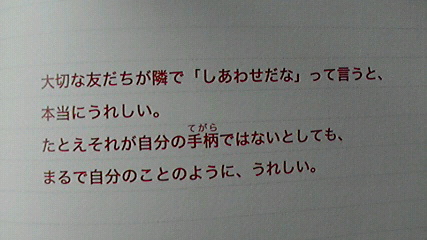 大切な友だちが隣で「しあわせだな」って言うと、
本当にうれしい。
たとえそれが自分の手柄ではないとしても、
まるで自分のことのように、うれしい。